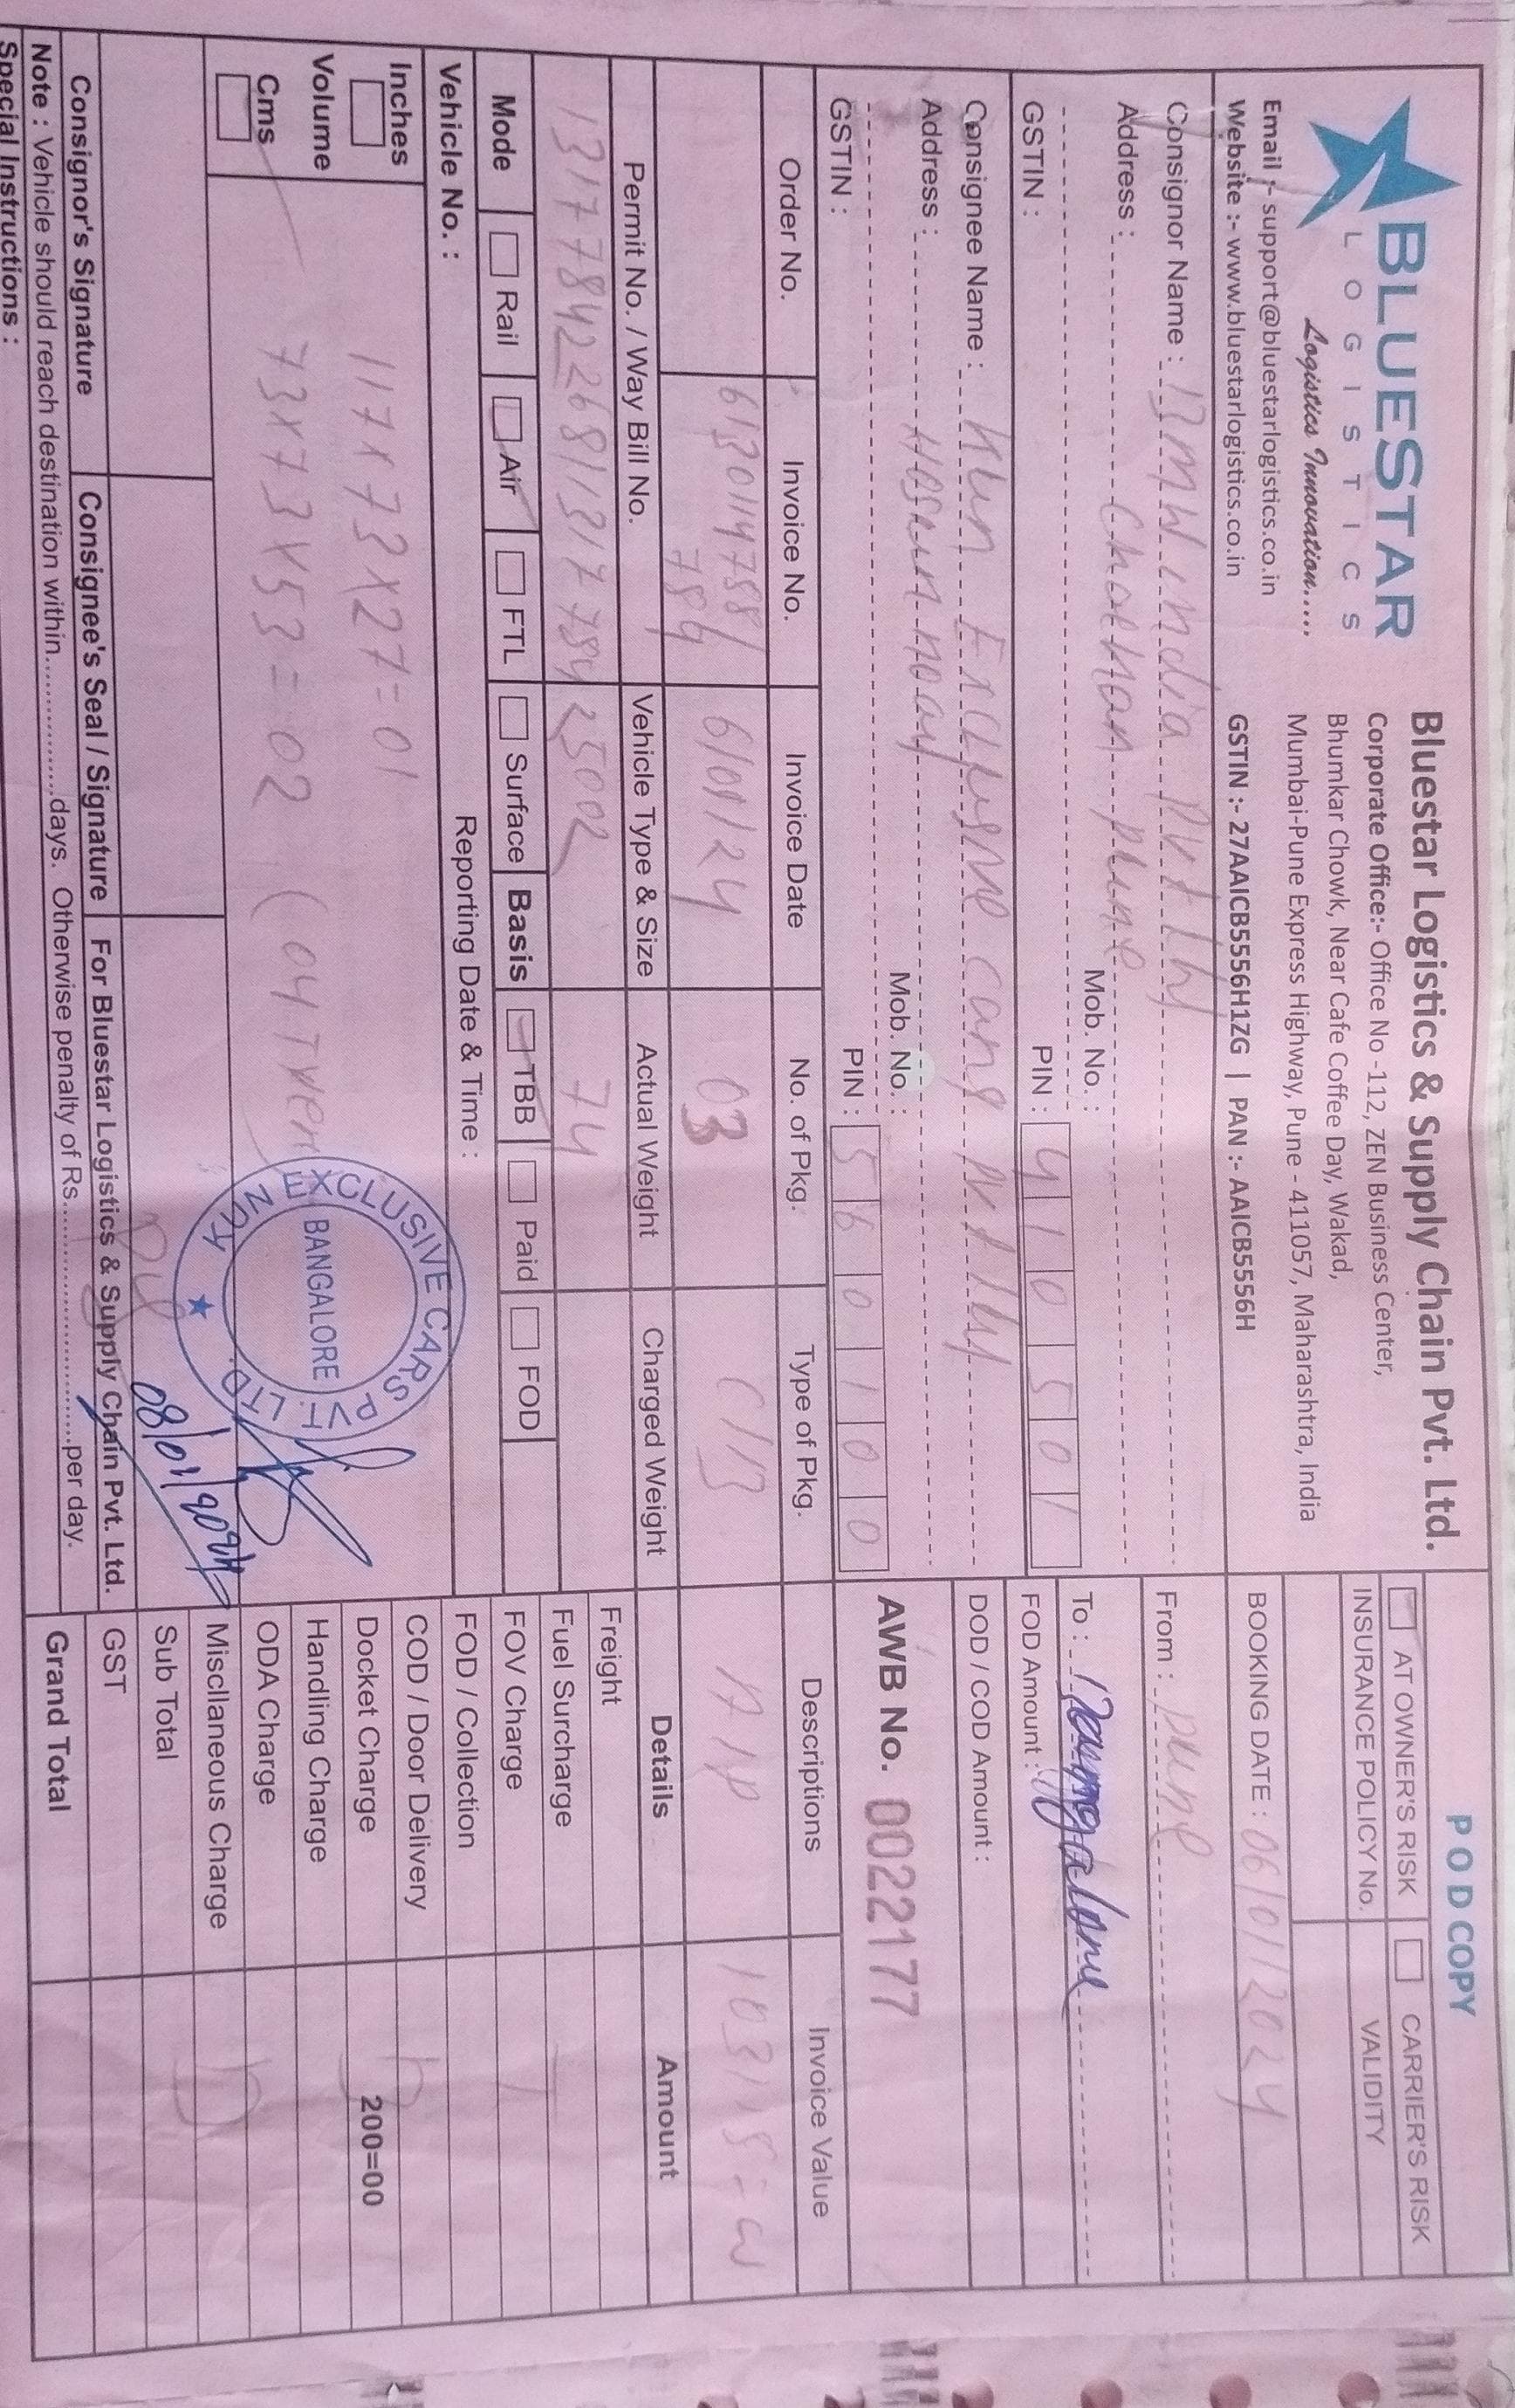 BLUESTAR
LOGISTICS
Logistics Innovation.....
Email :- support@bluestarlogistics.co.in
Website :- www.bluestarlogistics.co.in
Bluestar Logistics & Supply Chain Pvt. Ltd.
Corporate Office:- Office No -112, ZEN Business Center,
Bhumkar Chowk, Near Cafe Coffee Day, Wakad,
Mumbai-Pune Express Highway, Pune - 411057, Maharashtra, India
GSTIN :- 27AAICB5556H1ZG | PAN :- AAICB5556H
POD COPY
AT OWNER'S RISK CARRIER'S RISK
INSURANCE POLICY No. VALIDITY
BOOKING DATE : 06/01/2024
Consignor Name : BMW india Pvt Ltd
Address : Pune
Mob. No. :
GSTIN : PIN : 410501
From : pune
To :
FOD Amount :
DOD / COD Amount :
Consignee Name : Kun Exclusive cars Pvt Ltd
Address :
Mob. No. :
GSTIN : PIN : 560100
AWB No. 0022177
Order No. Invoice No. Invoice Date No. of Pkg. Type of Pkg. Descriptions Invoice Value
6130114788/ 6/01/24 03 C/B
789
Permit No. / Way Bill No. Vehicle Type & Size Actual Weight Charged Weight Details Amount
74
Freight
Fuel Surcharge
Mode Rail Air FTL Surface Basis TBB Paid FOD
FOV Charge
Vehicle No. : Reporting Date & Time :
FOD / Collection
COD / Door Delivery
Docket Charge 200=00
Handling Charge
ODA Charge
Miscllaneous Charge
Sub Total
GST
Grand Total
Inches
Volume
Cms
117x73x27=01
73x73x53=02 (04
KUN EXCLUSIVE CARS PVT. LTD.
BANGALORE
08/01/2024
Consignor's Signature Consignee's Seal / Signature For Bluestar Logistics & Supply Chain Pvt. Ltd.
Note : Vehicle should reach destination within.................days. Otherwise penalty of Rs.............................per day.
Special Instructions :